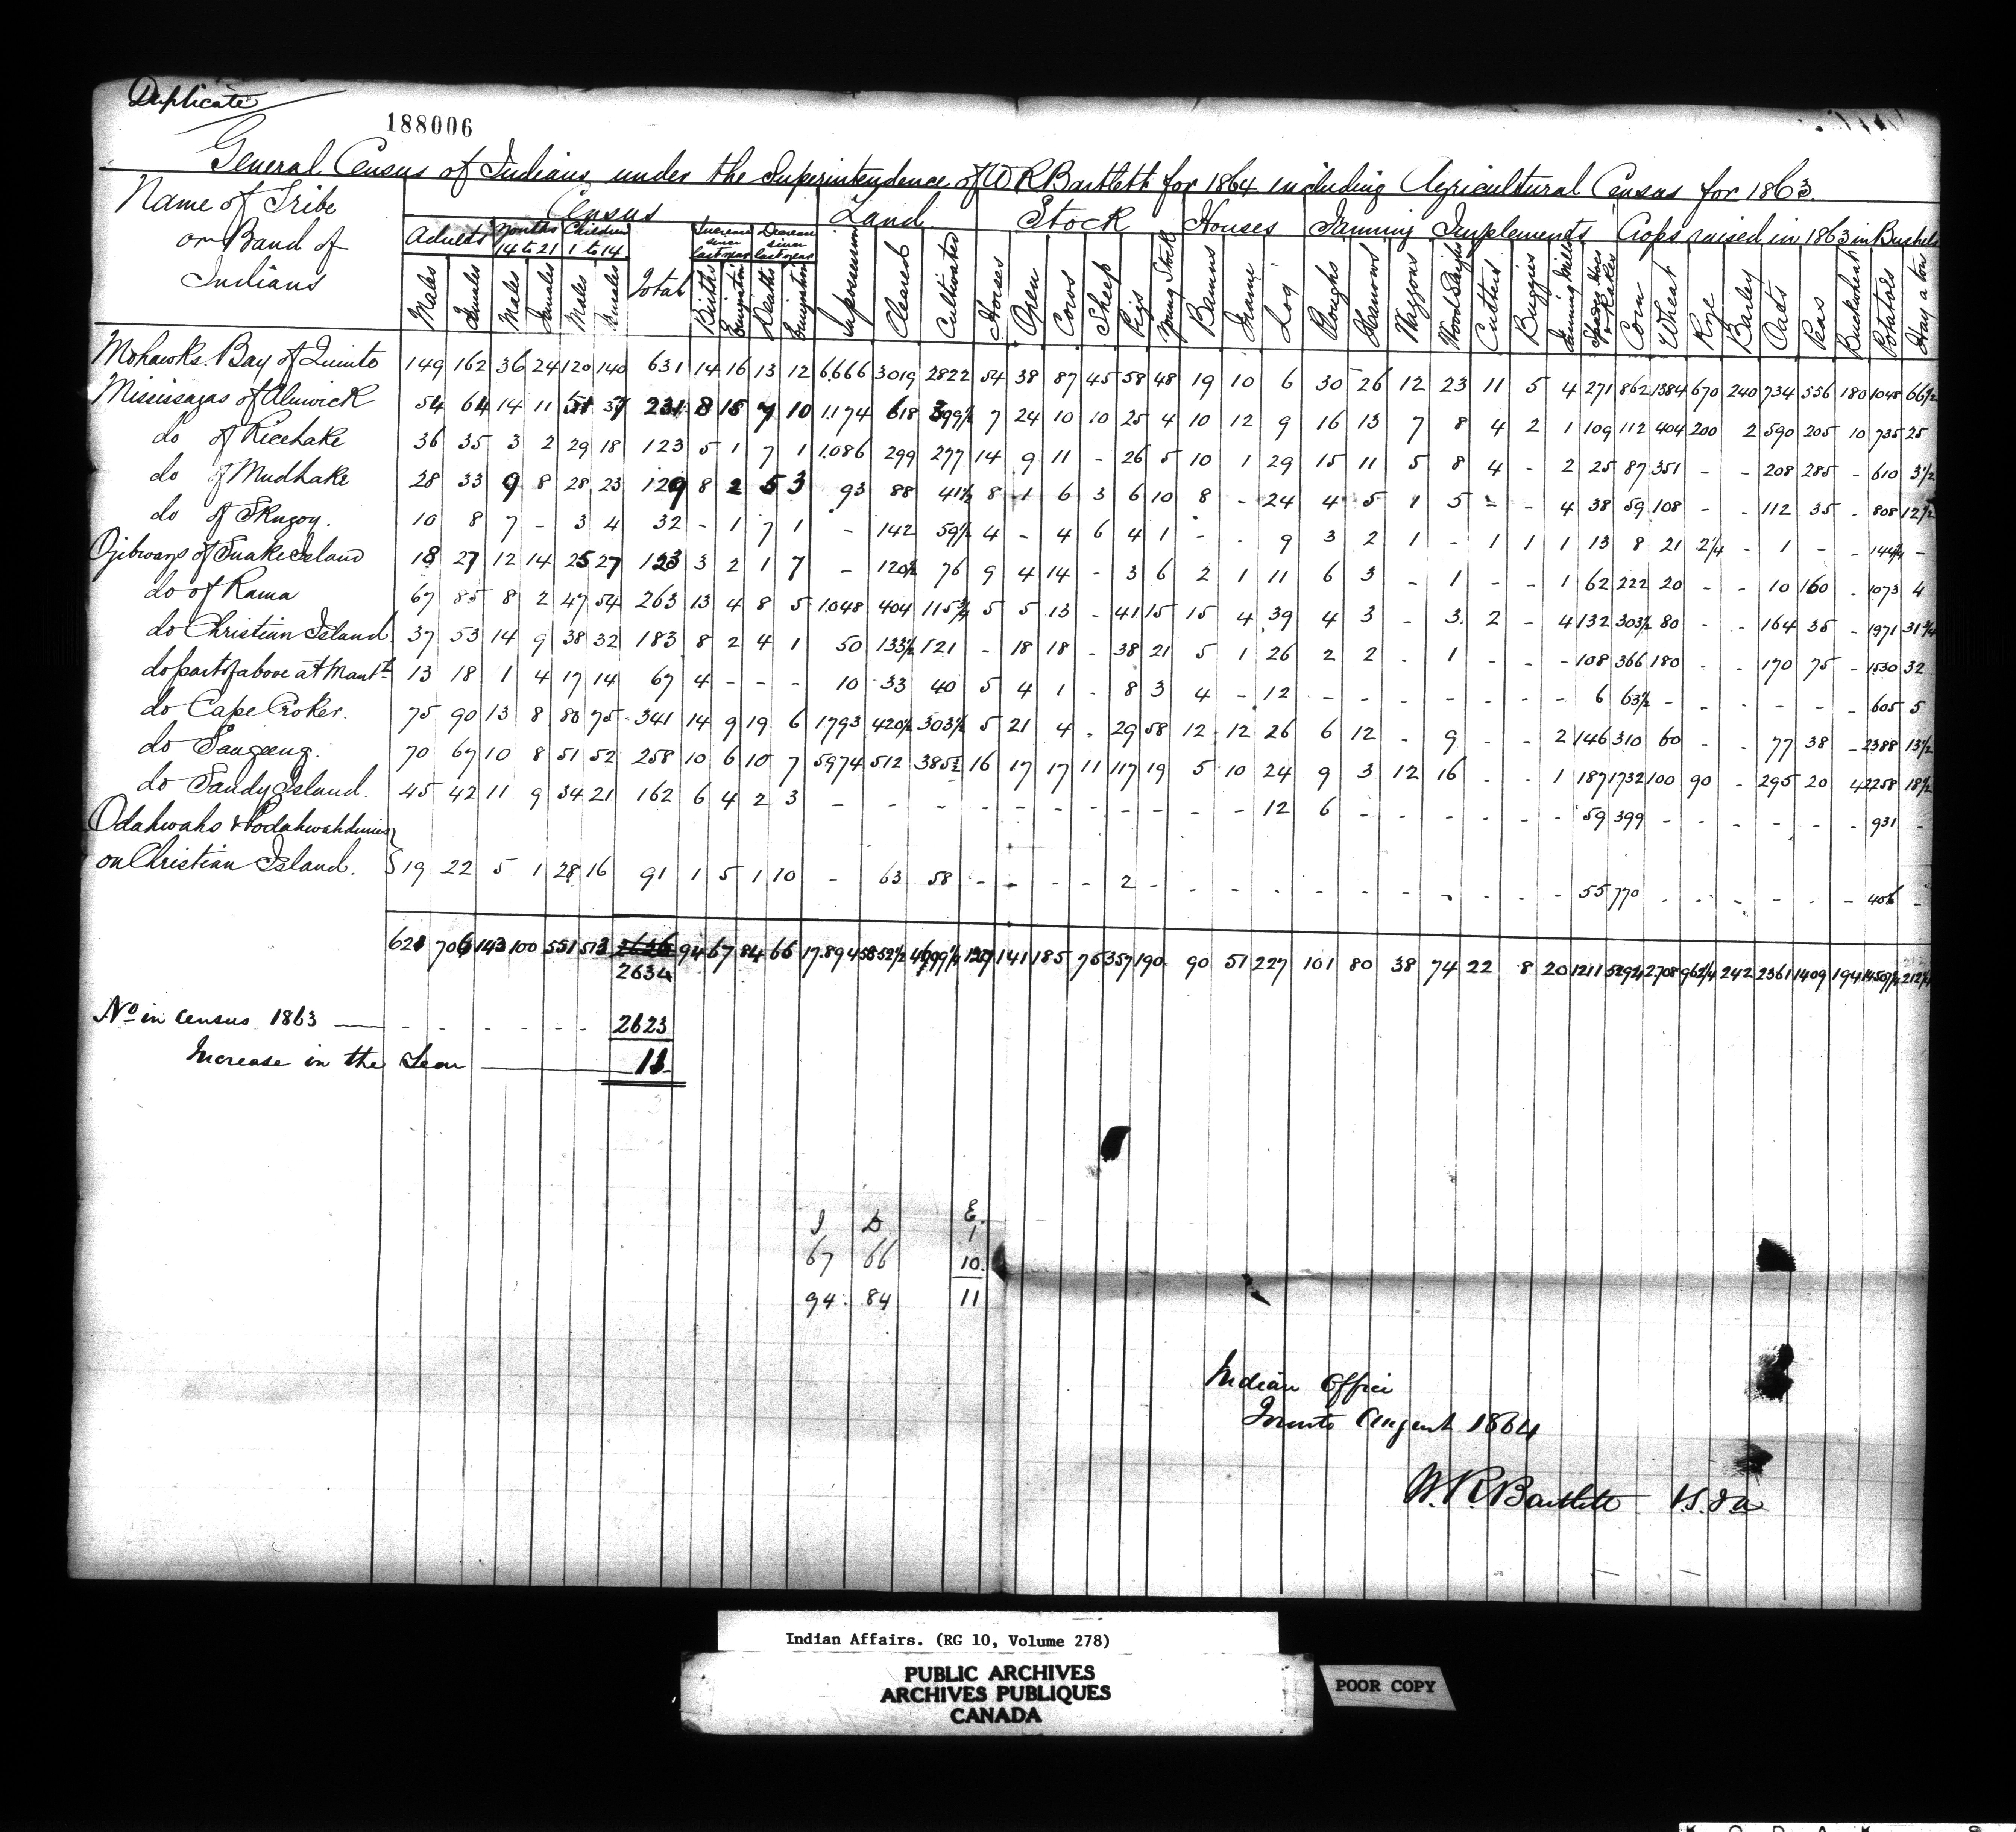 Duplicate
188006
General Census of Indians under the Superintendence of W R Bartlett for 1864 including Agricultural Census for 1863.
Name of Tribe or Band of Indians
Census Land Stock Houses Farming Implements Crops raised in 1863 in Bushels
Adults Youths 14 to 21 Children 1 to 14 Total Increase since last year Decrease since last year
Males Females Males Females Males Females Births Emigration Deaths Emigration In possession Cleared Cultivated Horses Oxen Cows Sheep Pigs Young Stock Barns Frame Log Ploughs Harrows Waggons Wood Sleighs Cutters Buggies Fanning Mills & Rakes Corn Wheat Rye Barley Oats Peas Buckwheat Potatoes Hay a ton
Mohawks Bay of Quinto 149 162 36 24 120 140 631 14 16 13 12 6666 3019 2822 54 38 87 45 58 48 19 10 6 30 26 12 23 11 5 4 271 862 1384 670 240 734 556 180 1048 66 1/2
Mississagas of Alnwick 54 64 14 11 37 231 8 15 7 10 1.174 618 399 1/2 7 24 10 10 25 4 10 12 9 16 13 7 8 4 2 1 109 112 404 200 2 590 205 10 735 25
do of Rice Lake 36 35 3 2 29 18 123 5 1 7 1 1.086 299 277 14 9 11 - 26 5 10 1 29 15 11 5 8 4 - 2 25 87 351 - - 208 285 - 610 3 1/2
do of Mud Lake 28 33 9 8 28 23 129 8 2 5 3 93 88 41 1/2 8 1 6 3 6 10 8 - 24 4 5 1 5 - - 4 38 59 108 - - 112 35 - 808 12 1/2
do of Skugog. 10 8 7 - 3 4 32 - 1 7 1 - 142 59 1/2 4 - 4 6 4 1 - - 9 3 2 1 - 1 1 1 13 8 21 2 1/4 - 1 - - 144 1/4 -
Ojibways of Snake Island 18 27 12 14 25 27 123 3 2 1 7 - 120 1/2 76 9 4 14 - 3 6 2 1 11 6 3 - 1 - - 1 62 222 20 - - 10 160 - 1073 4
do of Rama 67 85 8 2 47 54 263 13 4 8 5 1.048 404 115 3/4 5 5 13 - 41 15 15 4 39 4 3 - 3. 2 - 4 132 303 1/2 80 - - 164 35 - 1971 31 3/4
do Christian Island 37 53 14 9 38 32 183 8 2 4 1 50 133 1/2 121 - 18 18 - 38 21 5 1 26 2 2 - 1 - - - 108 366 180 - - 170 75 - 1530 32
do part of above at Manth 13 18 1 4 17 14 67 4 - - - 10 33 40 5 4 1 - 8 3 4 - 12 - - - - - - - 6 63 1/2 - - - - - - 605 5
do Cape Croker. 75 90 13 8 80 75 341 14 9 19 6 1793 420 1/2 303 1/2 5 21 4 - 29 58 12 12 26 6 12 - 9 - - 2 146 310 60 - - 77 38 - 2388 13 1/2
do Saugeeng. 70 67 10 8 51 52 258 10 6 10 7 5974 512 385 1/2 16 17 17 11 117 19 5 10 24 9 3 12 16 - - 1 187 1732 100 90 - 295 20 4 2258 18 1/2
do Sandy Island. 45 42 11 9 34 21 162 6 4 2 3 - - - - - - - - - - - 12 6 - - - - - - 59 399 - - - - - - 931 -
Odahwahs & Podahwahdimies
on Christian Island. 19 22 5 1 28 16 91 1 5 1 10 - 63 58 - - - - 2 - - - - - - - - - - - 55 770 - - - - - - 406 -
621 706 143 100 551 513 2636 94 67 84 66 17.894 5852 1/2 4699 1/4 127 141 185 75 357 190 90 51 227 101 80 38 74 22 8 20 1211 5292 1/2 2708 962 1/4 242 2361 1409 194 14507 1/4 212 1/4
2634
No in census 1863 2623
Increase in the Year 11
I D E.
1
67 66 10.
94. 84 11
Indian Office
Toronto August 1864
W. R. Bartlett
Indian Affairs. (RG 10, Volume 278)
PUBLIC ARCHIVES
ARCHIVES PUBLIQUES
CANADA
POOR COPY